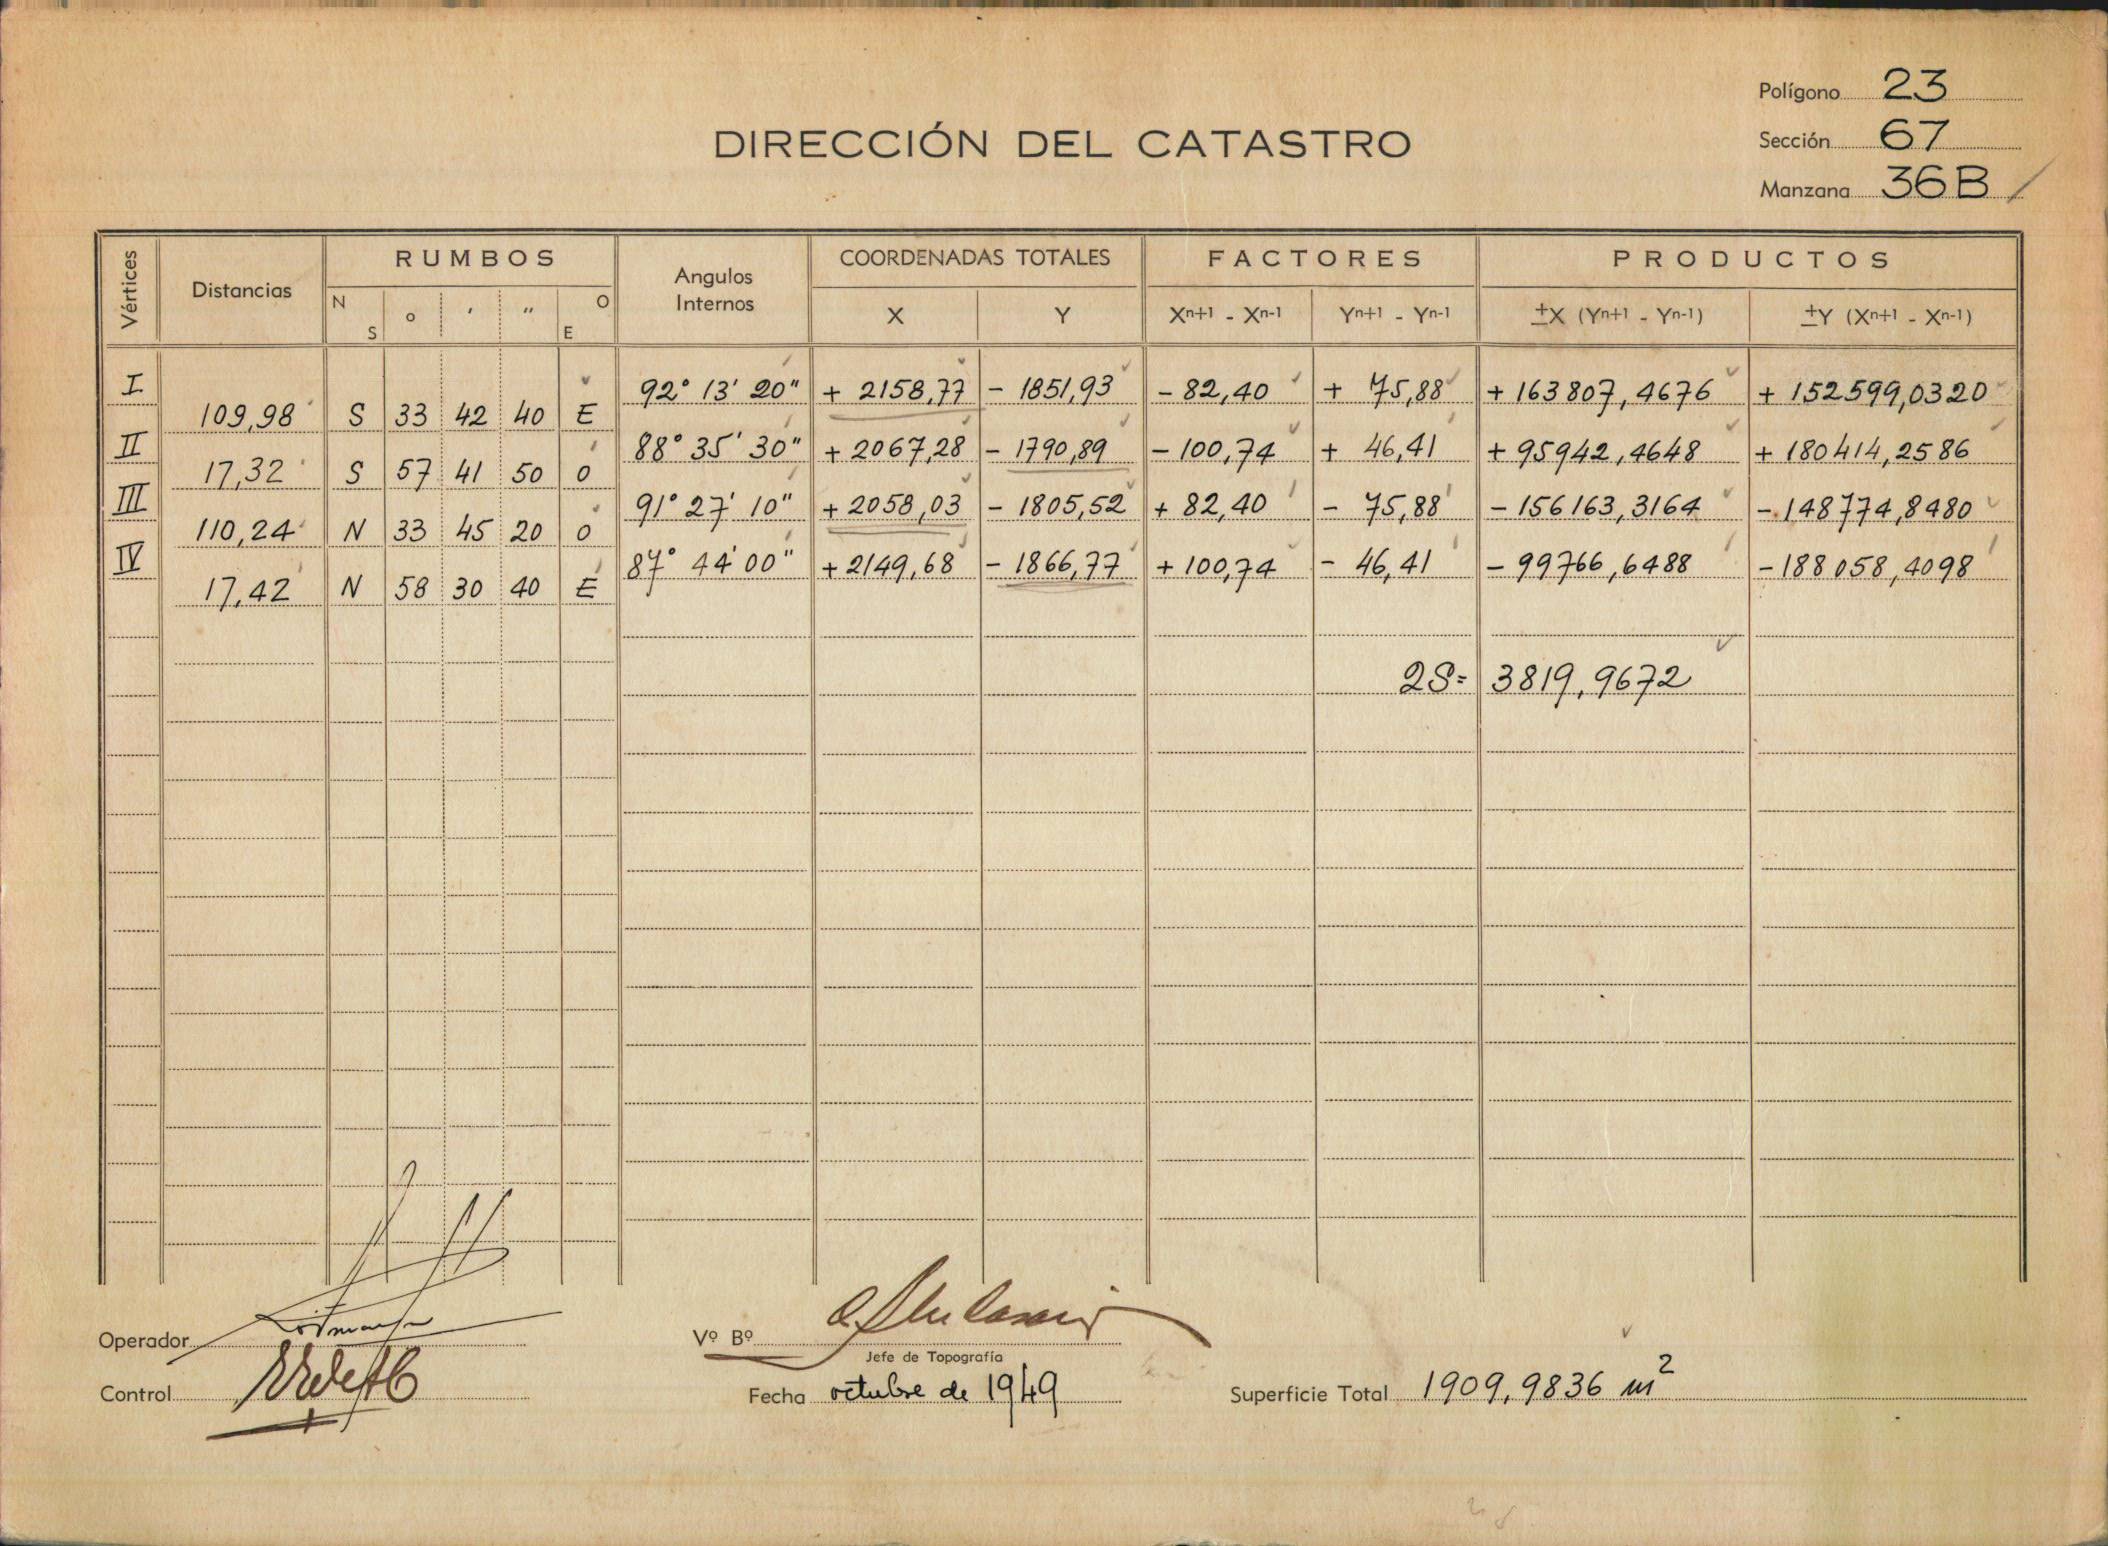 Polígono 23
DIRECCIÓN DEL CATASTRO
Sección 67
Manzana 36B
Vértices
Distancias
RUMBOS
N S
° ' "
O E
Angulos Internos
COORDENADAS TOTALES
X Y
FACTORES
Xn+1 - Xn-1 Yn+1 - Yn-1
PRODUCTOS
±X (Yn+1 - Yn-1) ±Y (Xn+1 - Xn-1)
I 92° 13' 20" + 2158,77 - 1851,93 - 82,40 + 75,88 + 163807,4676 + 152599,0320
109,98 S 33 42 40 E
II 88° 35' 30" + 2067,28 - 1790,89 - 100,74 + 46,41 + 95942,4648 + 180414,2586
17,32 S 57 41 50 O
III 91° 27' 10" + 2058,03 - 1805,52 + 82,40 - 75,88 - 156163,3164 - 148774,8480
110,24 N 33 45 20 O
IV 87° 44' 00" + 2149,68 - 1866,77 + 100,74 - 46,41 - 99766,6488 - 188058,4098
17,42 N 58 30 40 E
2S= 3819,9672
Operador
Vº Bº
Jefe de Topografía
Control
Fecha octubre de 1949
Superficie Total 1909,9836 m2